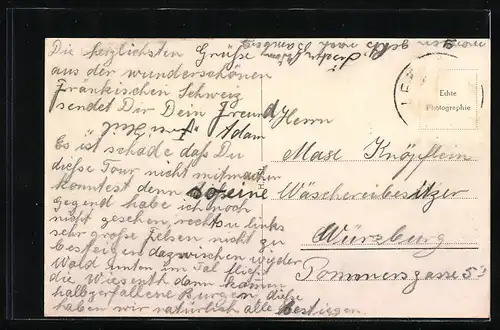 Die herzlichsten Grüße
aus der wunderschönen
Fränkischen Schweiz
sendet Dir Dein Freund
Adam
Es ist schade daß Du
diese Tour nicht mitmachen
konntest denn so eine
gegend habe ich noch
nicht gesehen, rechts u links
sehr große Felsen nicht zu
besteigen dazwischen wieder
Wald unten im Tal fließt
die Wiesenth dann kommen
halbzerfallene Burgen, diese
haben wir natürlich alle bestiegen.
nach Bamberg
Echte
Photographie
Herrn
Max Knöpflein
Wäschereibesitzer
Würzburg
Pommersgasse 5